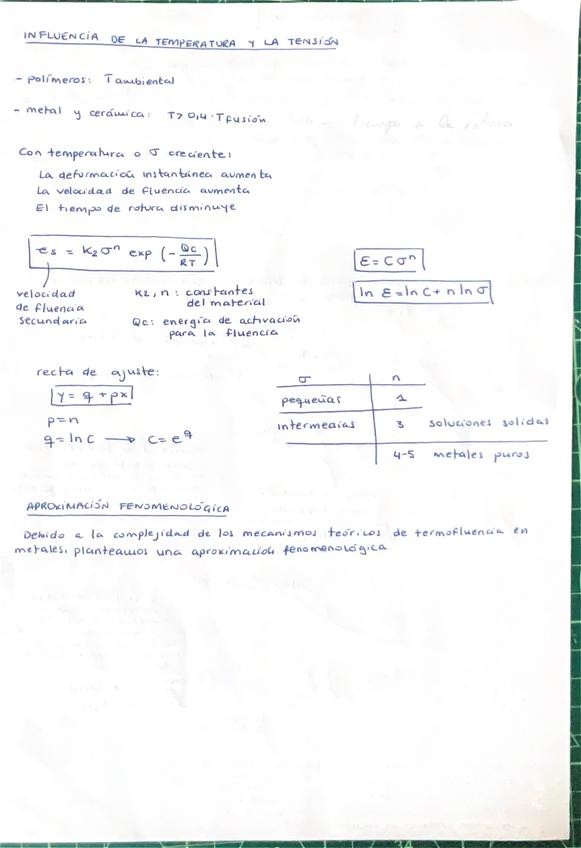 INFLUENCIA DE LA TEMPERATURA Y LA TENSIÓN
- polímeros: Tambiental
- metal y cerámica: T > 0,4 · Tfusión
Con temperatura o σ creciente:
La deformación instantánea aumenta
La velocidad de fluencia aumenta
El tiempo de rotura disminuye
es = K2 σ^n exp (- Qc/RT)
velocidad de fluencia secundaria
K2, n: constantes del material
Qc: energía de activación para la fluencia
ε = C σ^n
ln ε = ln C + n ln σ
recta de ajuste:
y = q + px
p = n
q = ln C → C = e^q
σ n
pequeñas 1
intermedias 3 soluciones solidas
4-5 metales puros
APROXIMACIÓN FENOMENOLÓGICA
Debido a la complejidad de los mecanismos teóricos de termofluencia en
metales, planteamos una aproximación fenomenológica